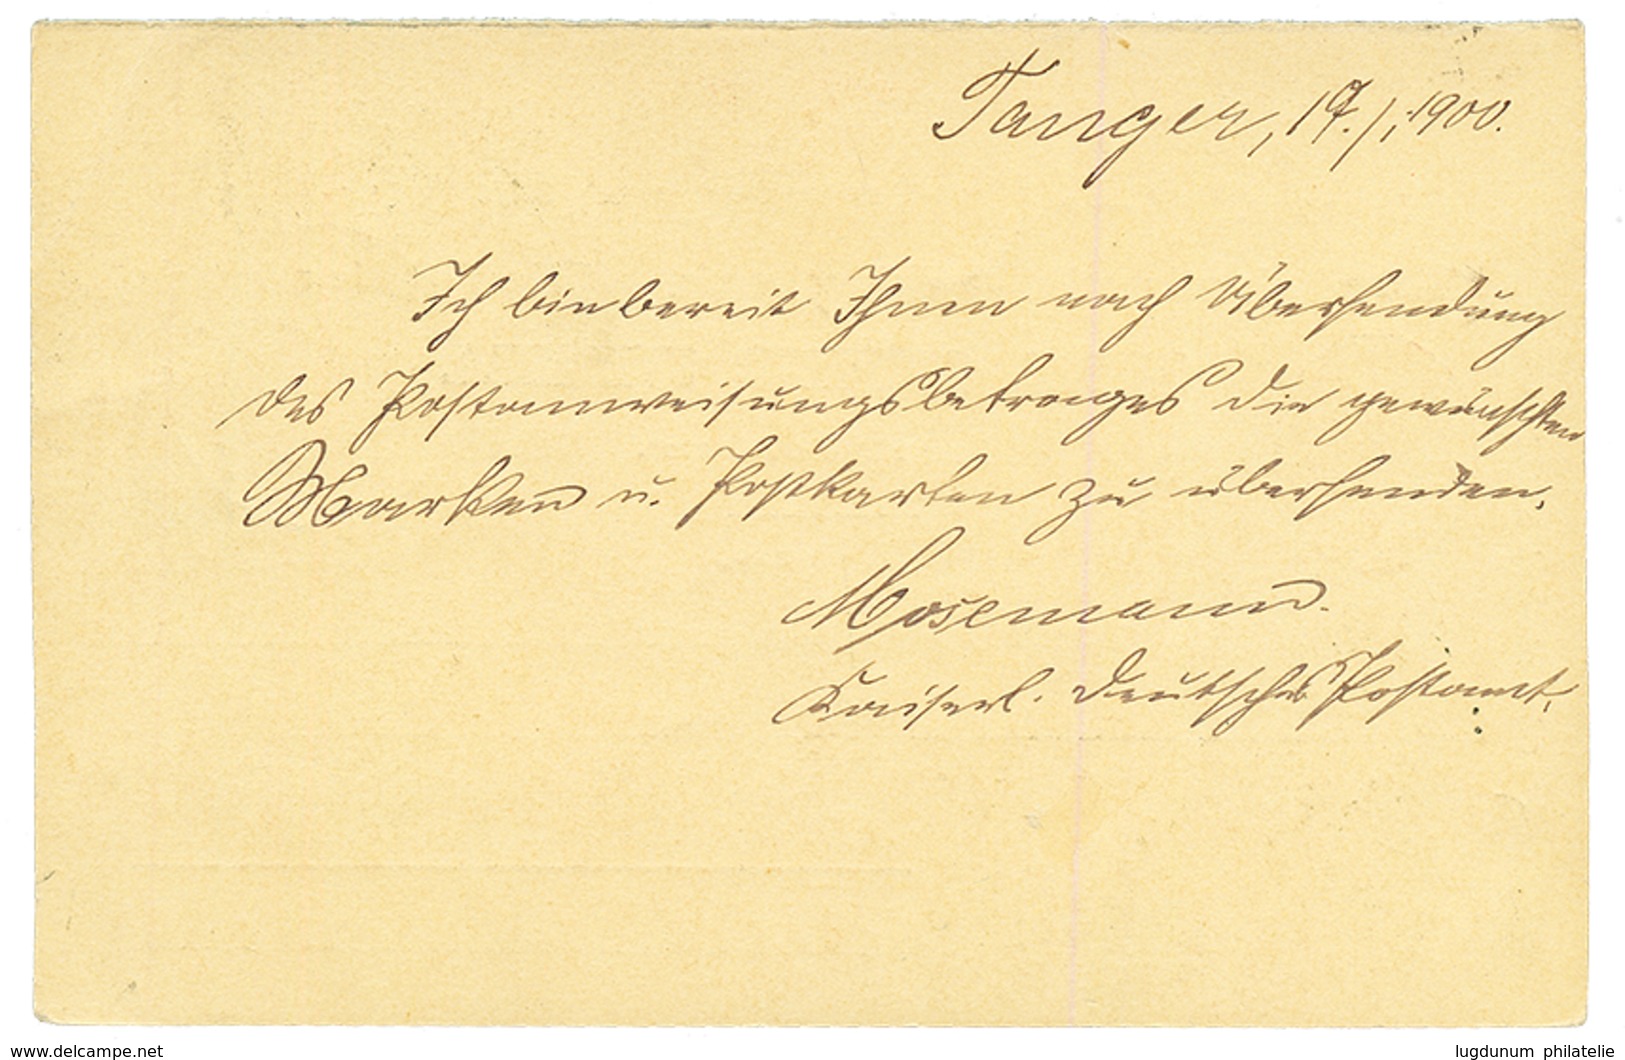 Tanger, 17./1.1900.
Ich bin bereit Ihnen nach Übersendung
des Postanweisungsbetrages die gewünschten
Marken u. Postkarten zu übersenden.
Mosemann.
Kaiserl. Deutsches Postamt.
www.delcampe.net
lugdunum philatelie